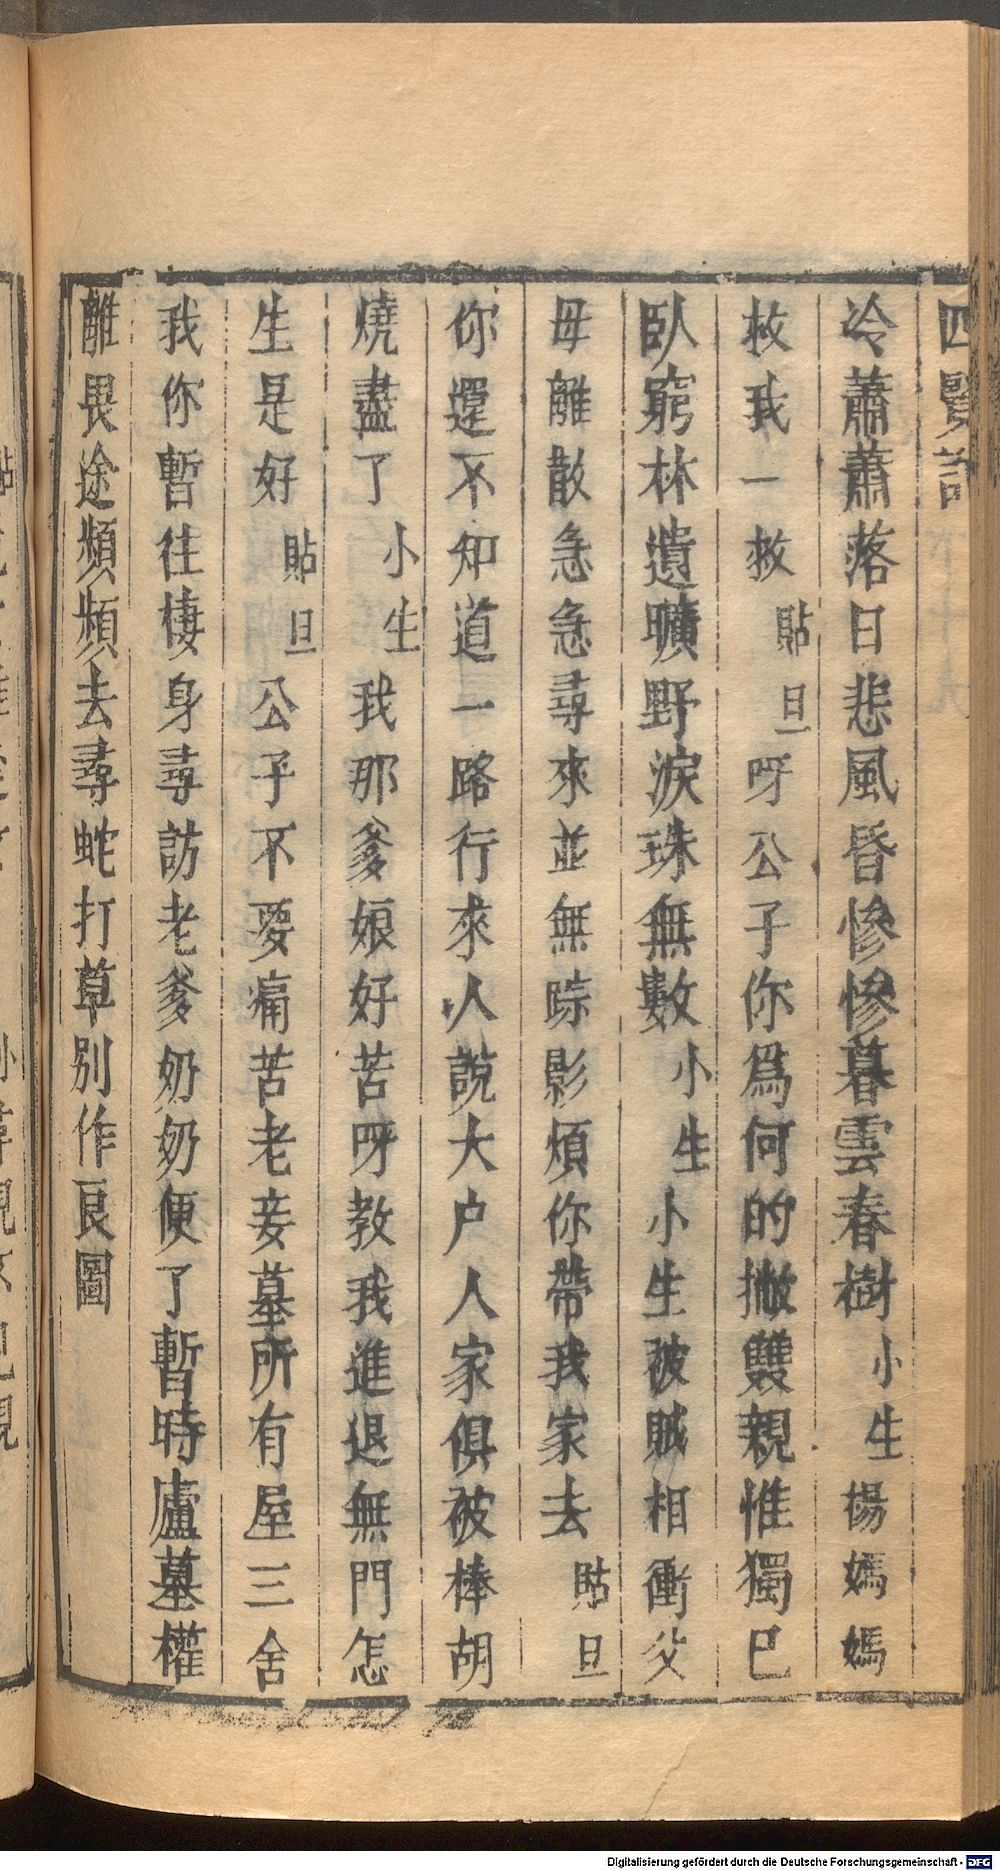 四賢記
冷蕭蕭落日悲風昏慘慘暮雲春樹小生楊媽媽
救我一救貼旦呀公子你爲何的撇雙親惟獨巳
臥窮林遺曠野淚珠無數小生小生被賊相衝父
母離散急急尋來並無踪影煩你帶我家去貼旦
你還不知道一路行來人說大户人家俱被棒胡
燒盡了小生我那爹娘好苦呀教我進退無門怎
生是好貼旦公子不要痛苦老妾墓所有屋三舍
我你暫往棲身尋訪老爹奶奶便了暫時廬墓權
離畏途頻頻去尋蛇打草別作良圖
Digitalisierung gefördert durch die Deutsche Forschungsgemeinschaft - DFG